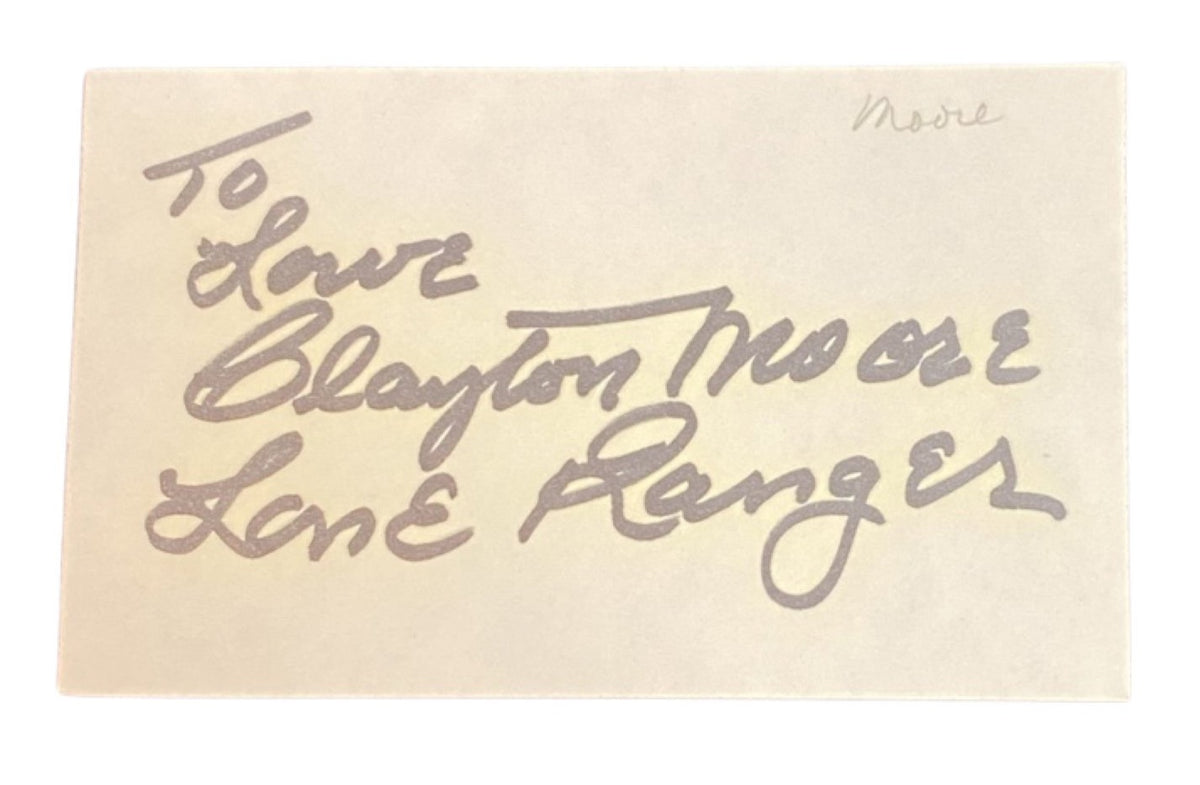 Moore
To
Love
Clayton Moore
Lone Ranger